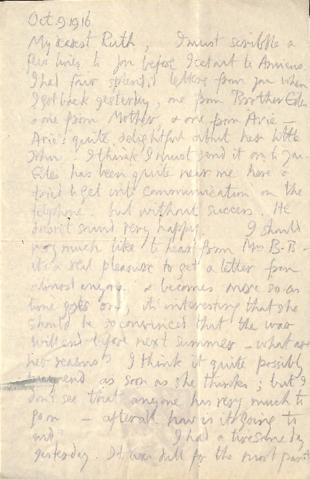 Oct 9 1916
My dearest Ruth, I must scribble a
few lines to you before I start to Amiens.
I had four splendid letters from you when
I got back yesterday, one from Brother Giles
& one from Mother, & one from Avie –
Avie's quite delightful about her little
John. I think I must send it on to you.
Giles has been quite near me here &
tried to get into communication on the
telephone but without success. He
doesn't sound very happy. I should
very much like to hear from Mrs B-B –
it's a real pleasure to get a letter from
almost anyone & becomes more so as
time goes on, it's interesting that she
should be so convinced that the war
will end before next summer – what are
her reasons? I think it quite possibly
may end as soon as she thinks; but I
don't see that anyone has very much to
go on – after all how is it going to
end? I had a tiresome day
yesterday. It was dull for the most part